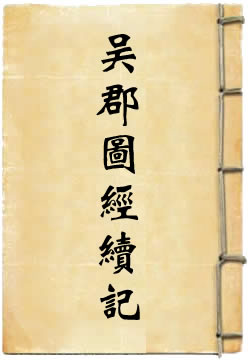 吴郡圖經續記